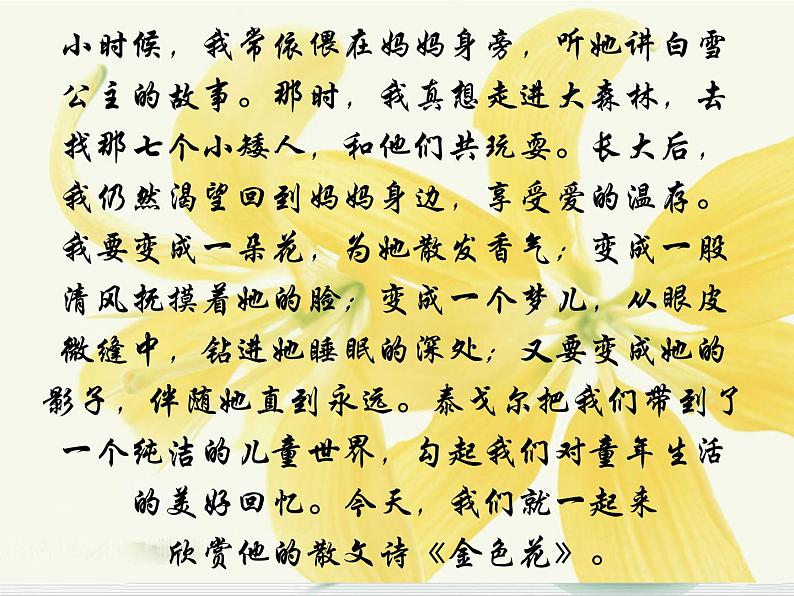 小时候，我常依偎在妈妈身旁，听她讲白雪
公主的故事。那时，我真想走进大森林，去
找那七个小矮人，和他们共玩耍。长大后，
我仍然渴望回到妈妈身边，享受爱的温存。
我要变成一朵花，为她散发香气；变成一股
清风抚摸着她的脸；变成一个梦儿，从眼皮
微缝中，钻进她睡眠的深处；又要变成她的
影子，伴随她直到永远。泰戈尔把我们带到了
一个纯洁的儿童世界，勾起我们对童年生活
的美好回忆。今天，我们就一起来
欣赏他的散文诗《金色花》。